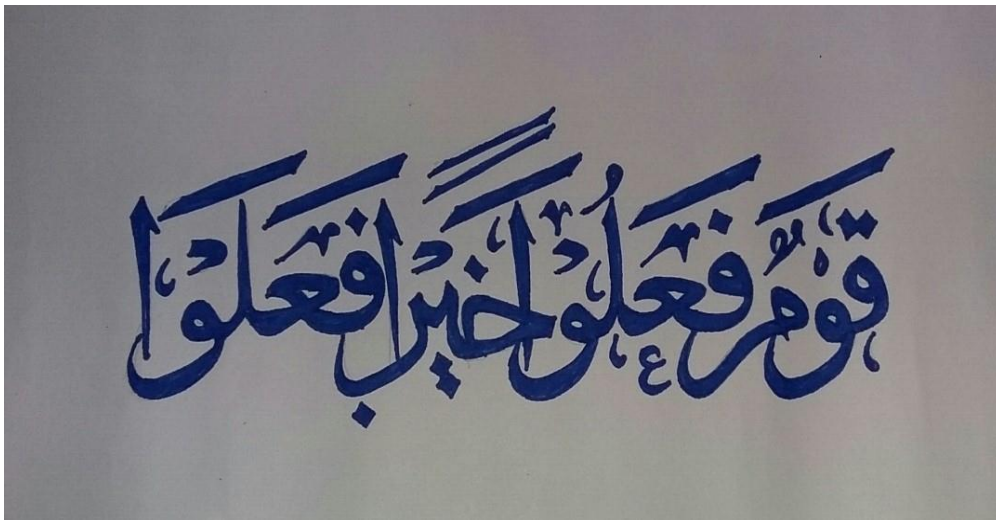 قَوْمٌ فَعَلُوْا خَيْرًا فَعَلَوْا